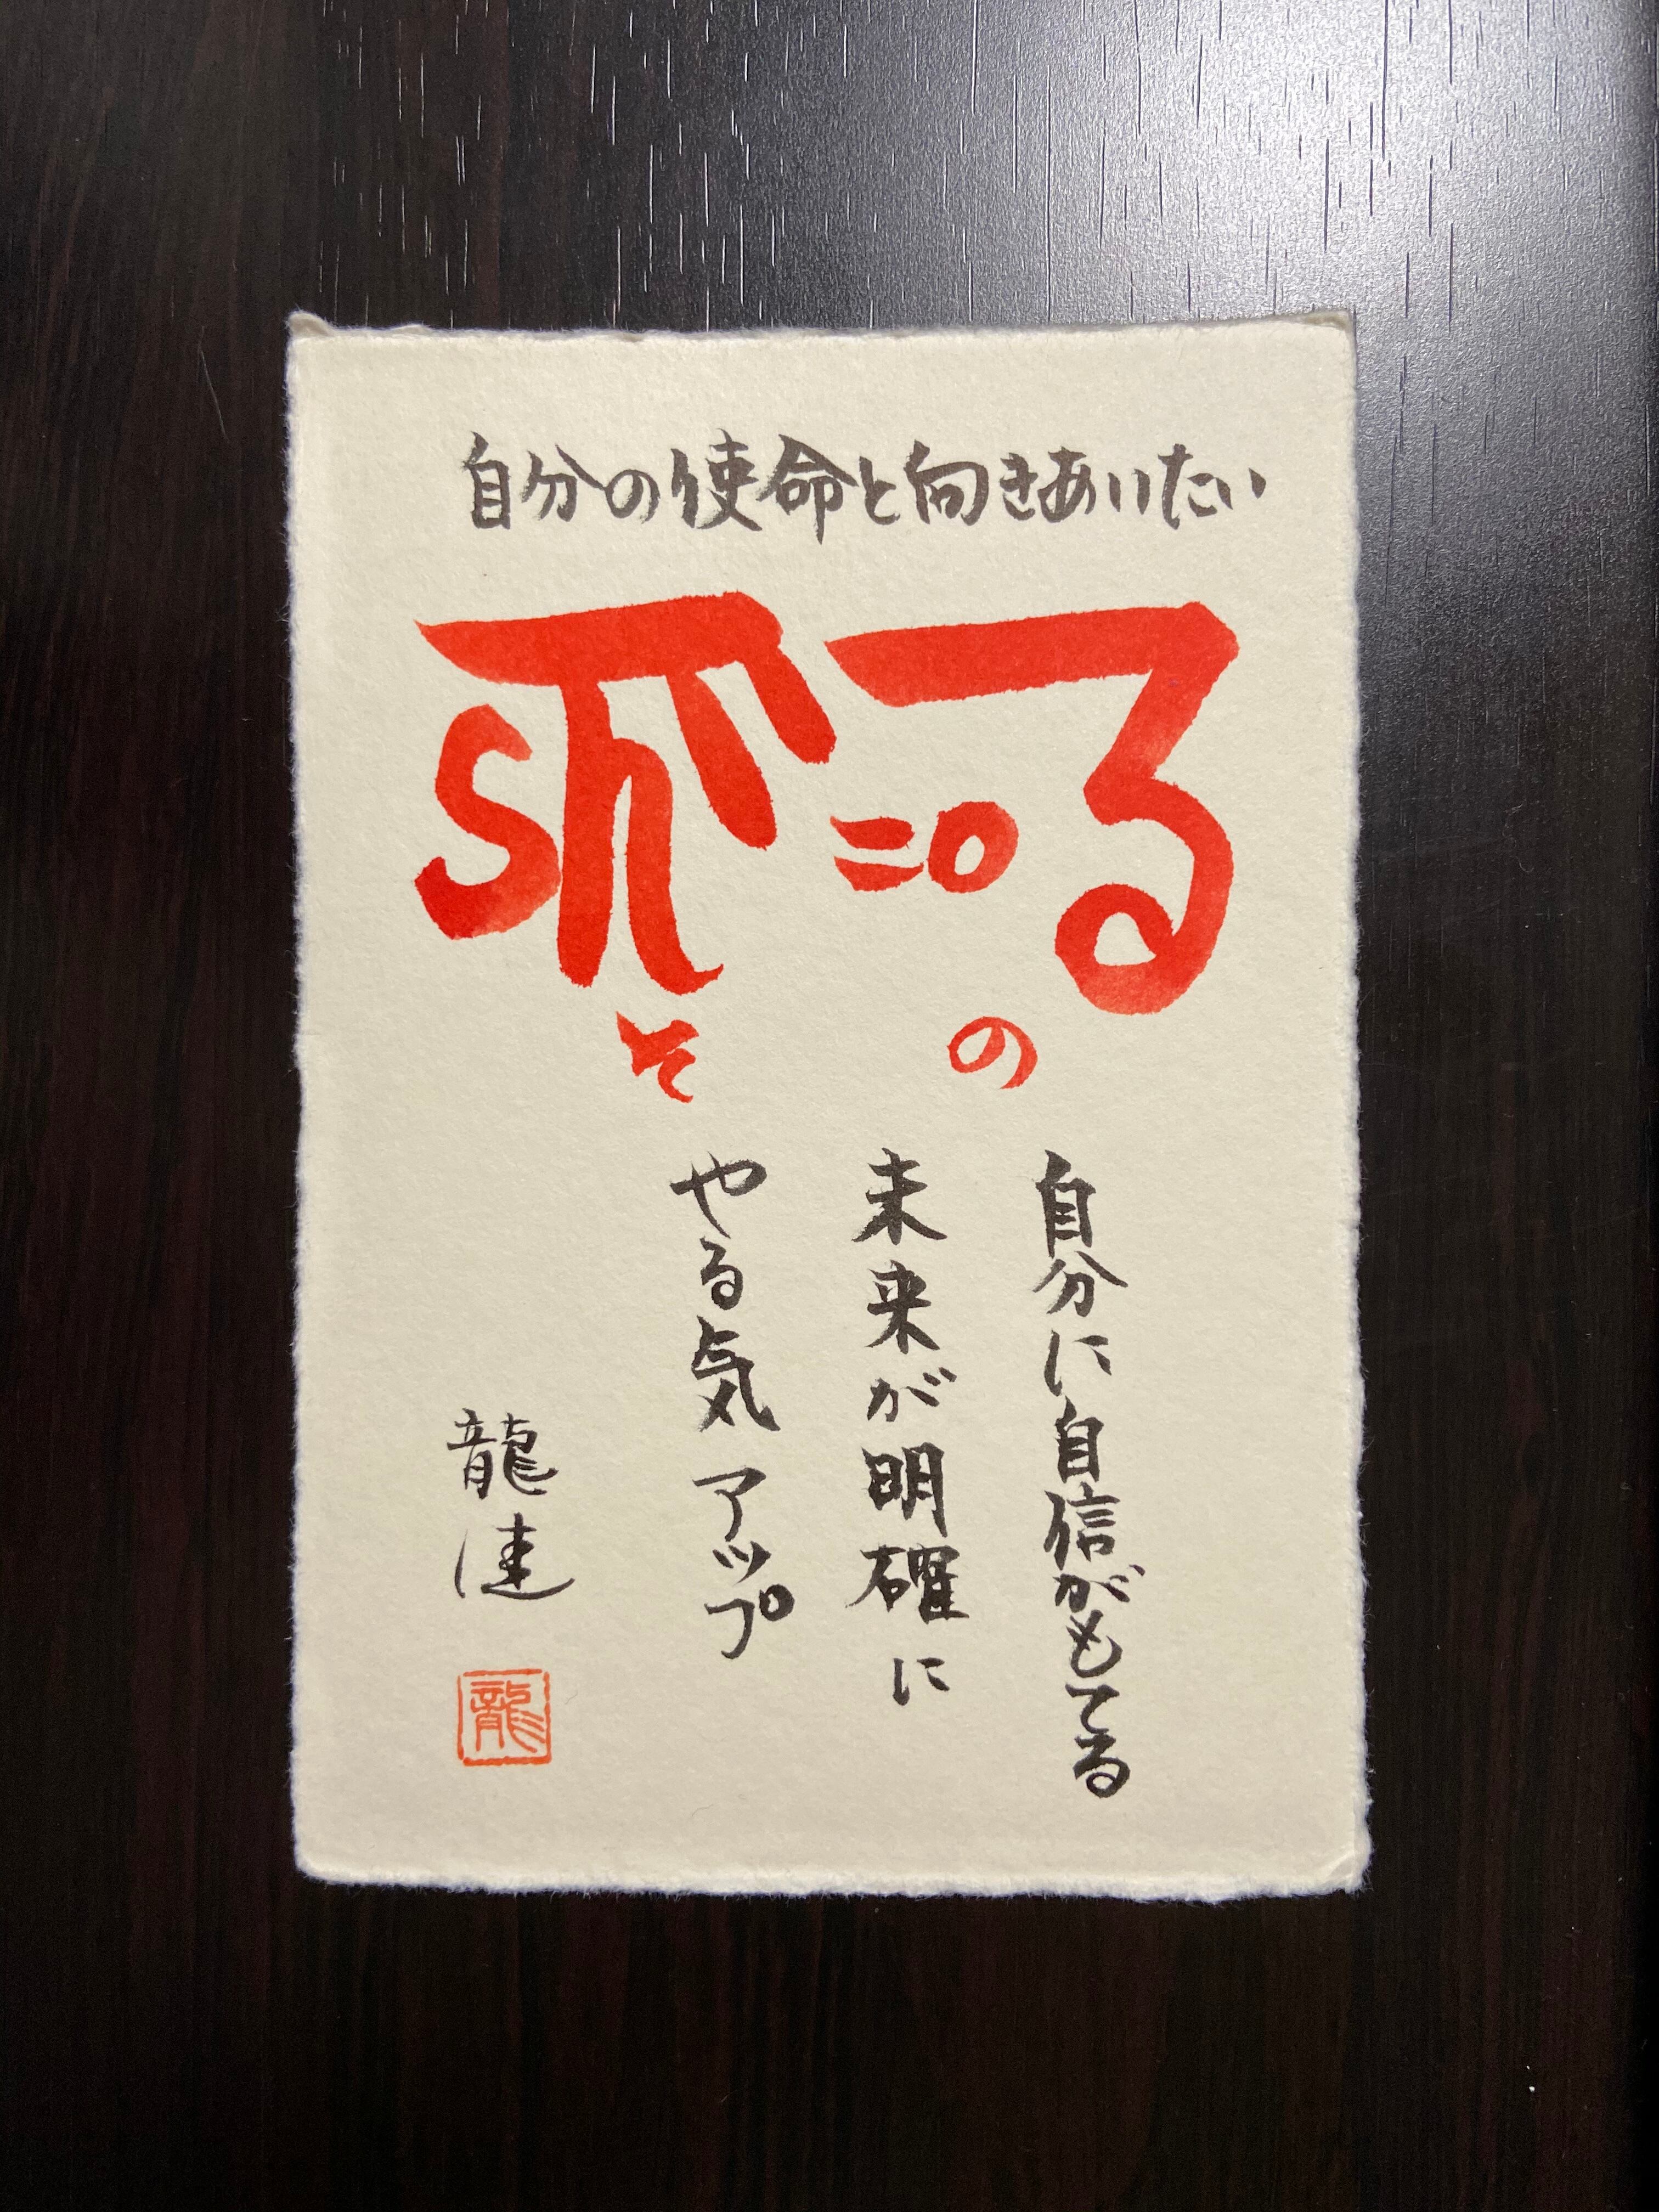 自分の使命と向きあいたい
そ の
自分に自信がもてる
未来が明確に
やる気アップ
龍